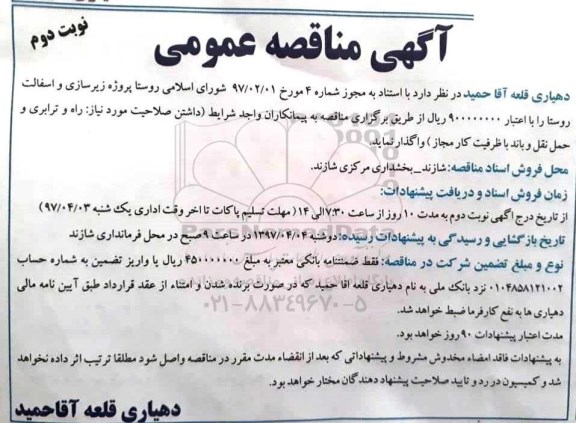 آگهی مناقصه عمومی
نوبت دوم
دهیاری قلعه آقا حمید در نظر دارد با استناد به مجوز شماره ۴ مورخ ۹۷/۰۲/۰۱ شورای اسلامی روستا پروژه زیرسازی و اسفالت
روستا را با اعتبار ۹۰۰۰۰۰۰۰۰۰ ریال از طریق برگزاری مناقصه به پیمانکاران واجد شرایط (داشتن صلاحیت مورد نیاز: راه و ترابری و
حمل نقل و باند با ظرفیت کار مجاز) واگذار نماید.
محل فروش اسناد مناقصه: شازند_بخشداری مرکزی شازند.
زمان فروش اسناد و دریافت پیشنهادات:
از تاریخ درج آگهی نوبت دوم به مدت ۱۰ روز از ساعت ۷:۳۰ الی ۱۴ (مهلت تسلیم پاکات تا اخر وقت اداری یک شنبه ۹۷/۰۴/۰۳)
تاریخ بازگشایی و رسیدگی به پیشنهادات رسیده: دوشنبه ۱۳۹۷/۰۴/۰۴ در ساعت ۹ صبح در محل فرمانداری شازند
نوع و مبلغ تضمین شرکت در مناقصه: فقط ضمنتنامه بانکی معتبر به مبلغ ۴۵۰۰۰۰۰۰۰ ریال یا واریز تضمین به شماره حساب
۰۱۰۴۸۵۸۱۲۱۰۰۲ نزد بانک ملی به نام دهیاری قلعه اقا حمید که در صورت برنده شدن و امتناع از عقد قرارداد طبق آیین نامه مالی
دهیاری ها به نفع کارفرما ضبط خواهد شد.
مدت اعتبار پیشنهادات ۹۰ روز خواهد بود.
به پیشنهادات فاقد امضاء مخدوش مشروط و پیشنهاداتی که بعد از انقضاء مدت مقرر در مناقصه واصل شود مطلقا ترتیب اثر داده نخواهد
شد و کمیسیون در رد و تایید صلاحیت پیشنهاد دهندگان مختار خواهد بود.
دهیاری قلعه آقاحمید
۰۲۱-۸۸۳۴۹۶۷۰-۵